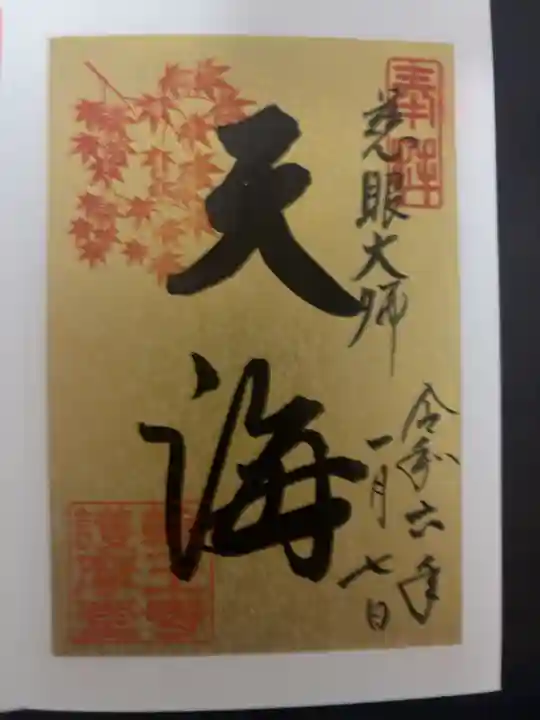 奉拝
慈眼大師
令和六年
一月七日
天海